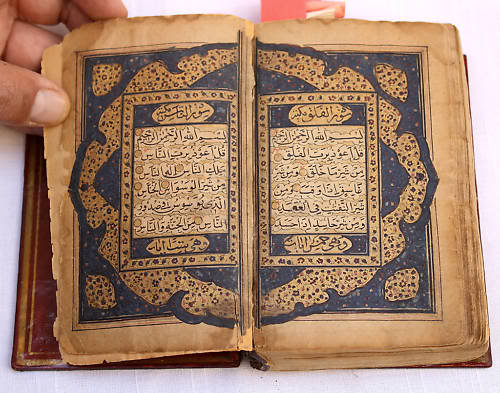 سورة الفلق
بسم الله الرحمن الرحيم
قل اعوذ برب الفلق
من شر ما خلق ومن شر
غاسق اذا وقب ومن
شر النفاثات في العقد
ومن شر حاسد اذا حسد
وهي خمس ايات
سورة الناس
بسم الله الرحمن الرحيم
قل اعوذ برب الناس
ملك الناس اله الناس
من شر الوسواس الخناس
الذي يوسوس في صدور
الناس من الجنة والناس
وهي ست ايات